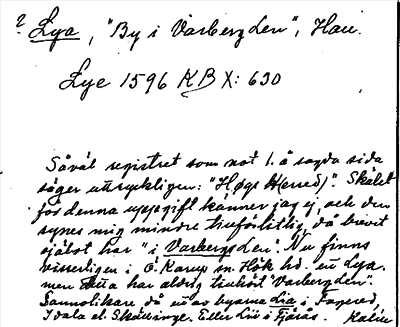 ? Lya, "By i Varbergs Len", Hall.
Lye 1596 KB X: 630
Såväl registret som not 1. å sagda sida
säger uttryckligen: "Høgs Herred)". Skälet
för denna uppgift känner jag ej, och den
synes mig mindre trovärdig, då brevet
självt har "i Varbergs Len". Nu finns
visserligen i Ö. Karup sn. Hök hd. en Lya.
men detta har aldrig tillhört "Varbergs Len".
Sannolikare då en av byarna Lia i Fagered,
Idala el. Skällinge. Eller Lii i Fjärås.